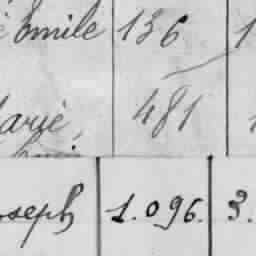 Emile 136 1
arie, 481
oseph 1.096. 3.